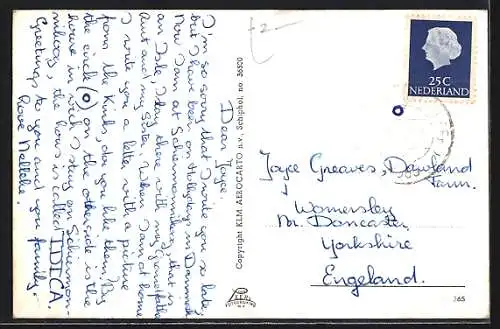 Dear Joyce.
I'm so sorry that I write you so late,
but I have been on Hollydays in Danmark
Now I am at Schiermonnikoog, that is
an Isle, I stay there with my Grandfather
Aunt and my sister. When I am at home
I write you a letter with a picture
from the Kinds, do you like them,
the circle (o) on the otherside is the
house in wich I stay on Schiermon-
nikoog, the hous is called IDICA.
Greetings to you and you family.
Copyright KLM AEROCARTO n.v. Schiphol, no 36500
25C
NEDERLAND
Joyce Greaves, Dowland
Farm.
Womersley
Nr. Doncaster
Yorkshire
Engeland.
365